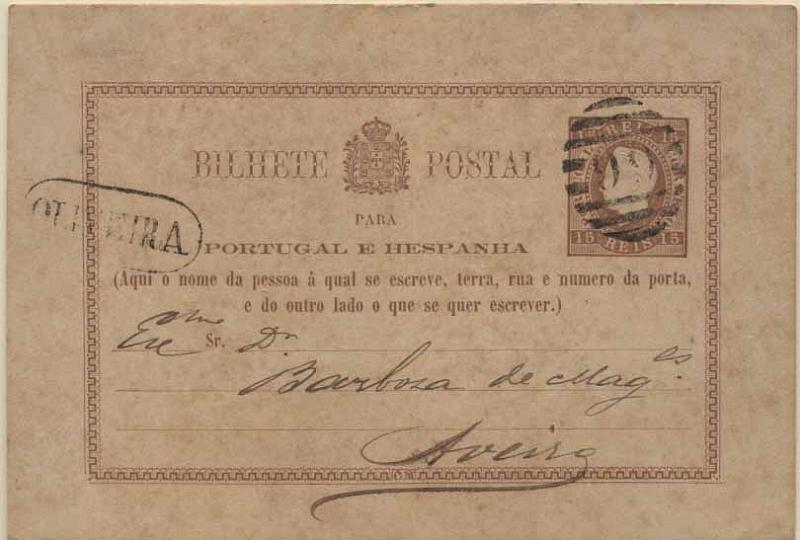 BILHETE POSTAL
PARA
PORTUGAL E HESPANHA
(Aqui o nome da pessoa á qual se escreve, terra, rua e numero da porta,
e do outro lado o que se quer escrever.)
OLIVEIRA
15 REIS 15
Exmo Sr. Dr
Barbosa de Mages.
Aveiro